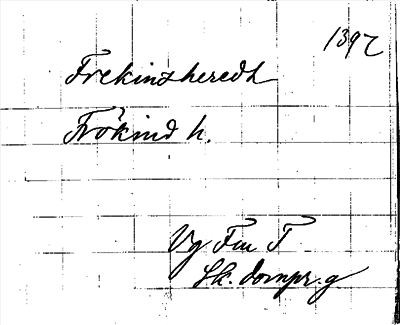 1397
Frekinzheredh
Frökind h.
Vg Fnr T
Sk. dompr. g.